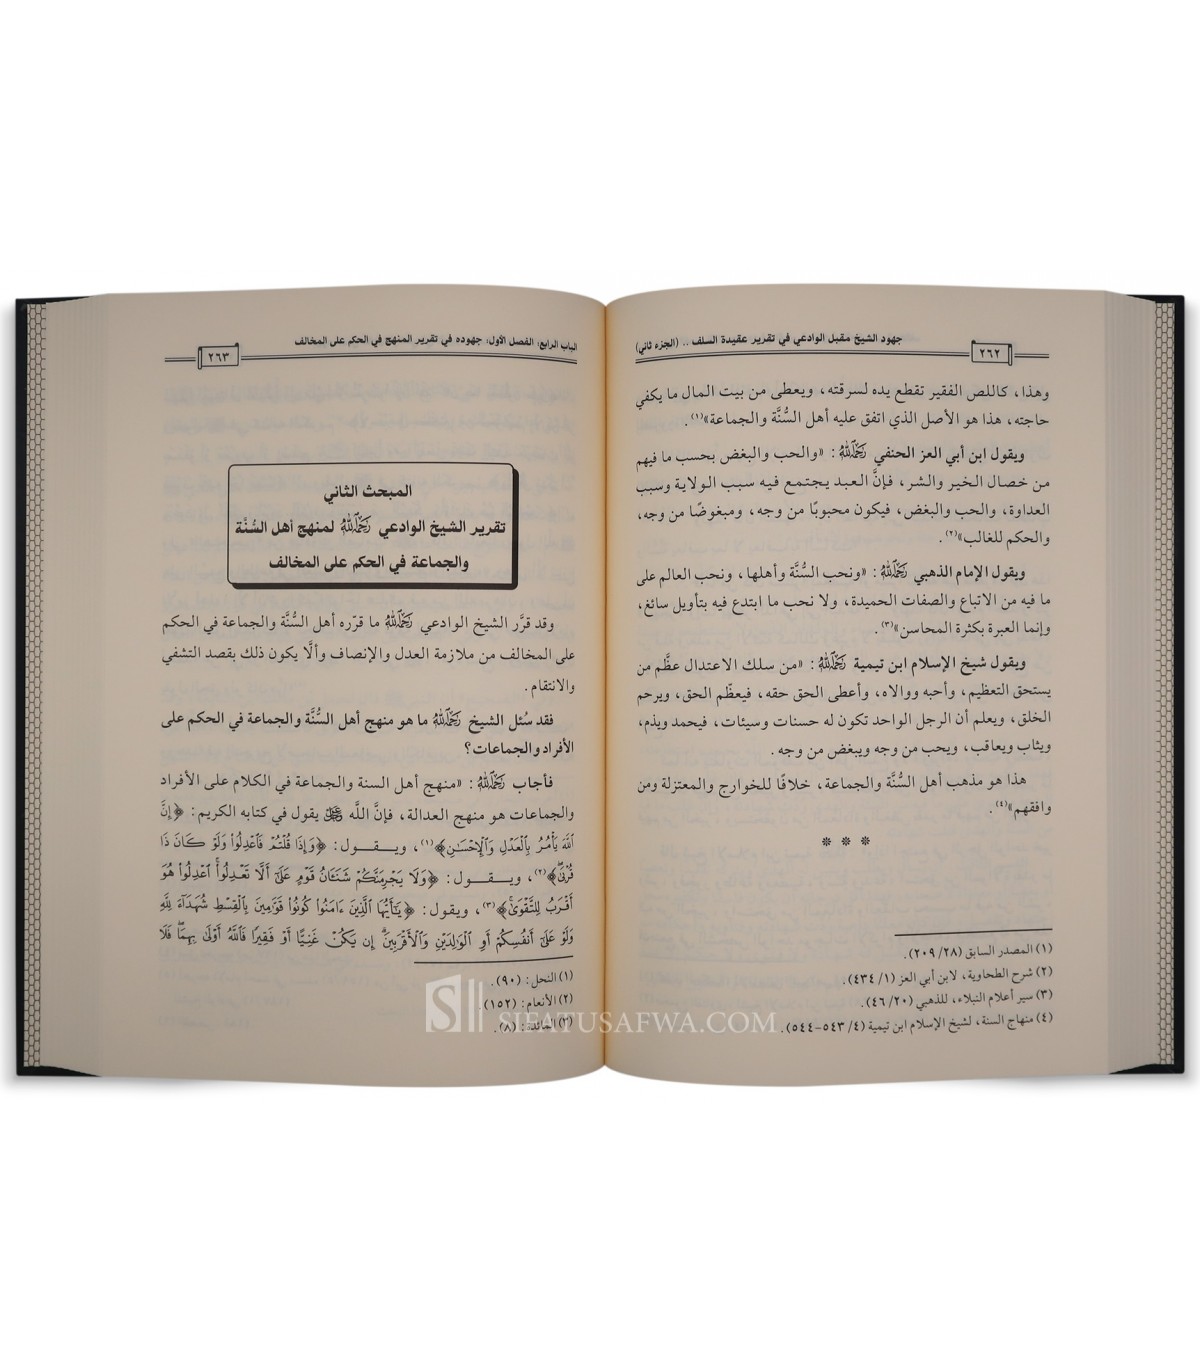 جهود الشيخ مقبل الوادعي في تقرير عقيدة السلف .. (الجزء ثاني)
٢٦٢
وهذا، كاللص الفقير تقطع يده لسرقته، ويعطى من بيت المال ما يكفي
حاجته، هذا هو الأصل الذي اتفق عليه أهل السُّنَّة والجماعة»(١).
ويقول ابن أبي العز الحنفي رَحِمَهُ اللَّهُ: «والحب والبغض بحسب ما فيهم
من خصال الخير والشر، فإنَّ العبد يجتمع فيه سبب الولاية وسبب
العداوة، والحب والبغض، فيكون محبوبًا من وجه، ومبغوضًا من وجه،
والحكم للغالب»(٢).
ويقول الإمام الذهبي رَحِمَهُ اللَّهُ: «ونحب السُّنَّة وأهلها، ونحب العالم على
ما فيه من الاتباع والصفات الحميدة، ولا نحب ما ابتدع فيه بتأويل سائغ،
وإنما العبرة بكثرة المحاسن»(٣).
ويقول شيخ الإسلام ابن تيمية رَحِمَهُ اللَّهُ: «من سلك الاعتدال عظَّم من
يستحق التعظيم، وأحبه ووالاه، وأعطى الحق حقه، فيعظّم الحق، ويرحم
الخلق، ويعلم أن الرجل الواحد تكون له حسنات وسيئات، فيحمد ويذم،
ويثاب ويعاقب، ويحب من وجه ويبغض من وجه.
هذا هو مذهب أهل السُّنَّة والجماعة، خلافًا للخوارج والمعتزلة ومن
وافقهم»(٤).
* * *
(١) المصدر السابق (٢٠٩/٢٨).
(٢) شرح الطحاوية، لابن أبي العز (٤٣٤/١).
(٣) سير أعلام النبلاء، للذهبي (٤٦/٢٠).
(٤) منهاج السنة، لشيخ الإسلام ابن تيمية (٥٤٣/٤-٥٤٤).
الباب الرابع: الفصل الأول: جهوده في تقرير المنهج في الحكم على المخالف
٢٦٣
المبحث الثاني
تقرير الشيخ الوادعي رَحِمَهُ اللَّهُ لمنهج أهل السُّنَّة
والجماعة في الحكم على المخالف
وقد قرَّر الشيخ الوادعي رَحِمَهُ اللَّهُ ما قرّره أهل السُّنَّة والجماعة في الحكم
على المخالف من ملازمة العدل والإنصاف وألَّا يكون ذلك بقصد التشفي
والانتقام.
فقد سُئل الشيخ رَحِمَهُ اللَّهُ ما هو منهج أهل السُّنَّة والجماعة في الحكم على
الأفراد والجماعات؟
فأجاب رَحِمَهُ اللَّهُ: «منهج أهل السنة والجماعة في الكلام على الأفراد
والجماعات هو منهج العدالة، فإنَّ اللَّه يقول في كتابه الكريم: ﴿إِنَّ
ٱللَّهَ يَأۡمُرُ بِٱلۡعَدۡلِ وَٱلۡإِحۡسَٰنِ﴾(١)، ويقول: ﴿وَإِذَا قُلۡتُمۡ فَٱعۡدِلُواْ وَلَوۡ كَانَ ذَا
قُرۡبَىٰۖ﴾(٢)، ويقول: ﴿وَلَا يَجۡرِمَنَّكُمۡ شَنَـَٔانُ قَوۡمٍ عَلَىٰٓ أَلَّا تَعۡدِلُواْۚ ٱعۡدِلُواْ هُوَ
أَقۡرَبُ لِلتَّقۡوَىٰۖ﴾(٣)، ويقول: ﴿يَٰٓأَيُّهَا ٱلَّذِينَ ءَامَنُواْ كُونُواْ قَوَّٰمِينَ بِٱلۡقِسۡطِ شُهَدَآءَ لِلَّهِ
وَلَوۡ عَلَىٰٓ أَنفُسِكُمۡ أَوِ ٱلۡوَٰلِدَيۡنِ وَٱلۡأَقۡرَبِينَۚ إِن يَكُنۡ غَنِيًّا أَوۡ فَقِيرٗا فَٱللَّهُ أَوۡلَىٰ بِهِمَاۖ فَلَا
(١) النحل: (٩٠).
(٢) الأنعام: (١٥٢).
(٣) المائدة: (٨).
SIFATUSAFWA.COM